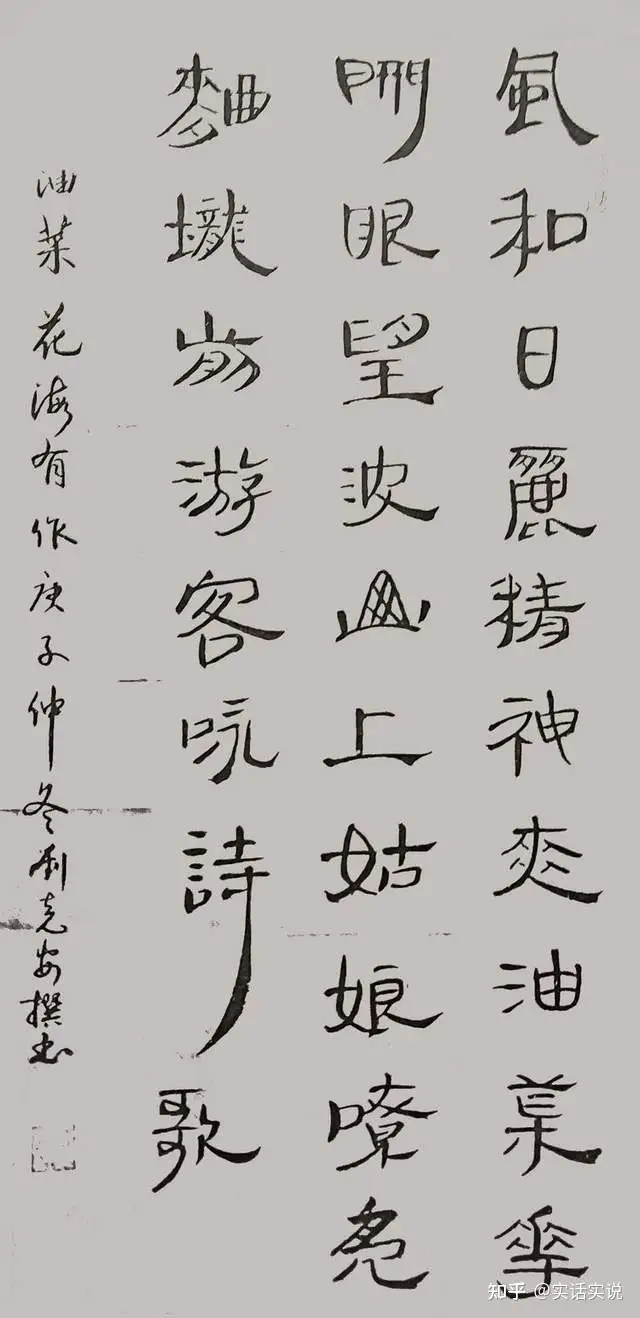 風和日麗精神爽油菜華
眼望波上姑娘嘹亮
麯壠前游客咏詩歌
油菜花海有作庚子仲冬刘克安撰书
知乎 @实话实说